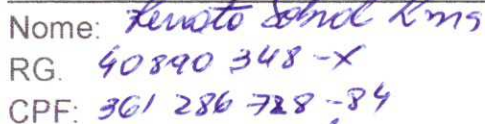 Nome: Renato Sobral Lima
RG. 40890 348-X
CPF: 361 286 728-84